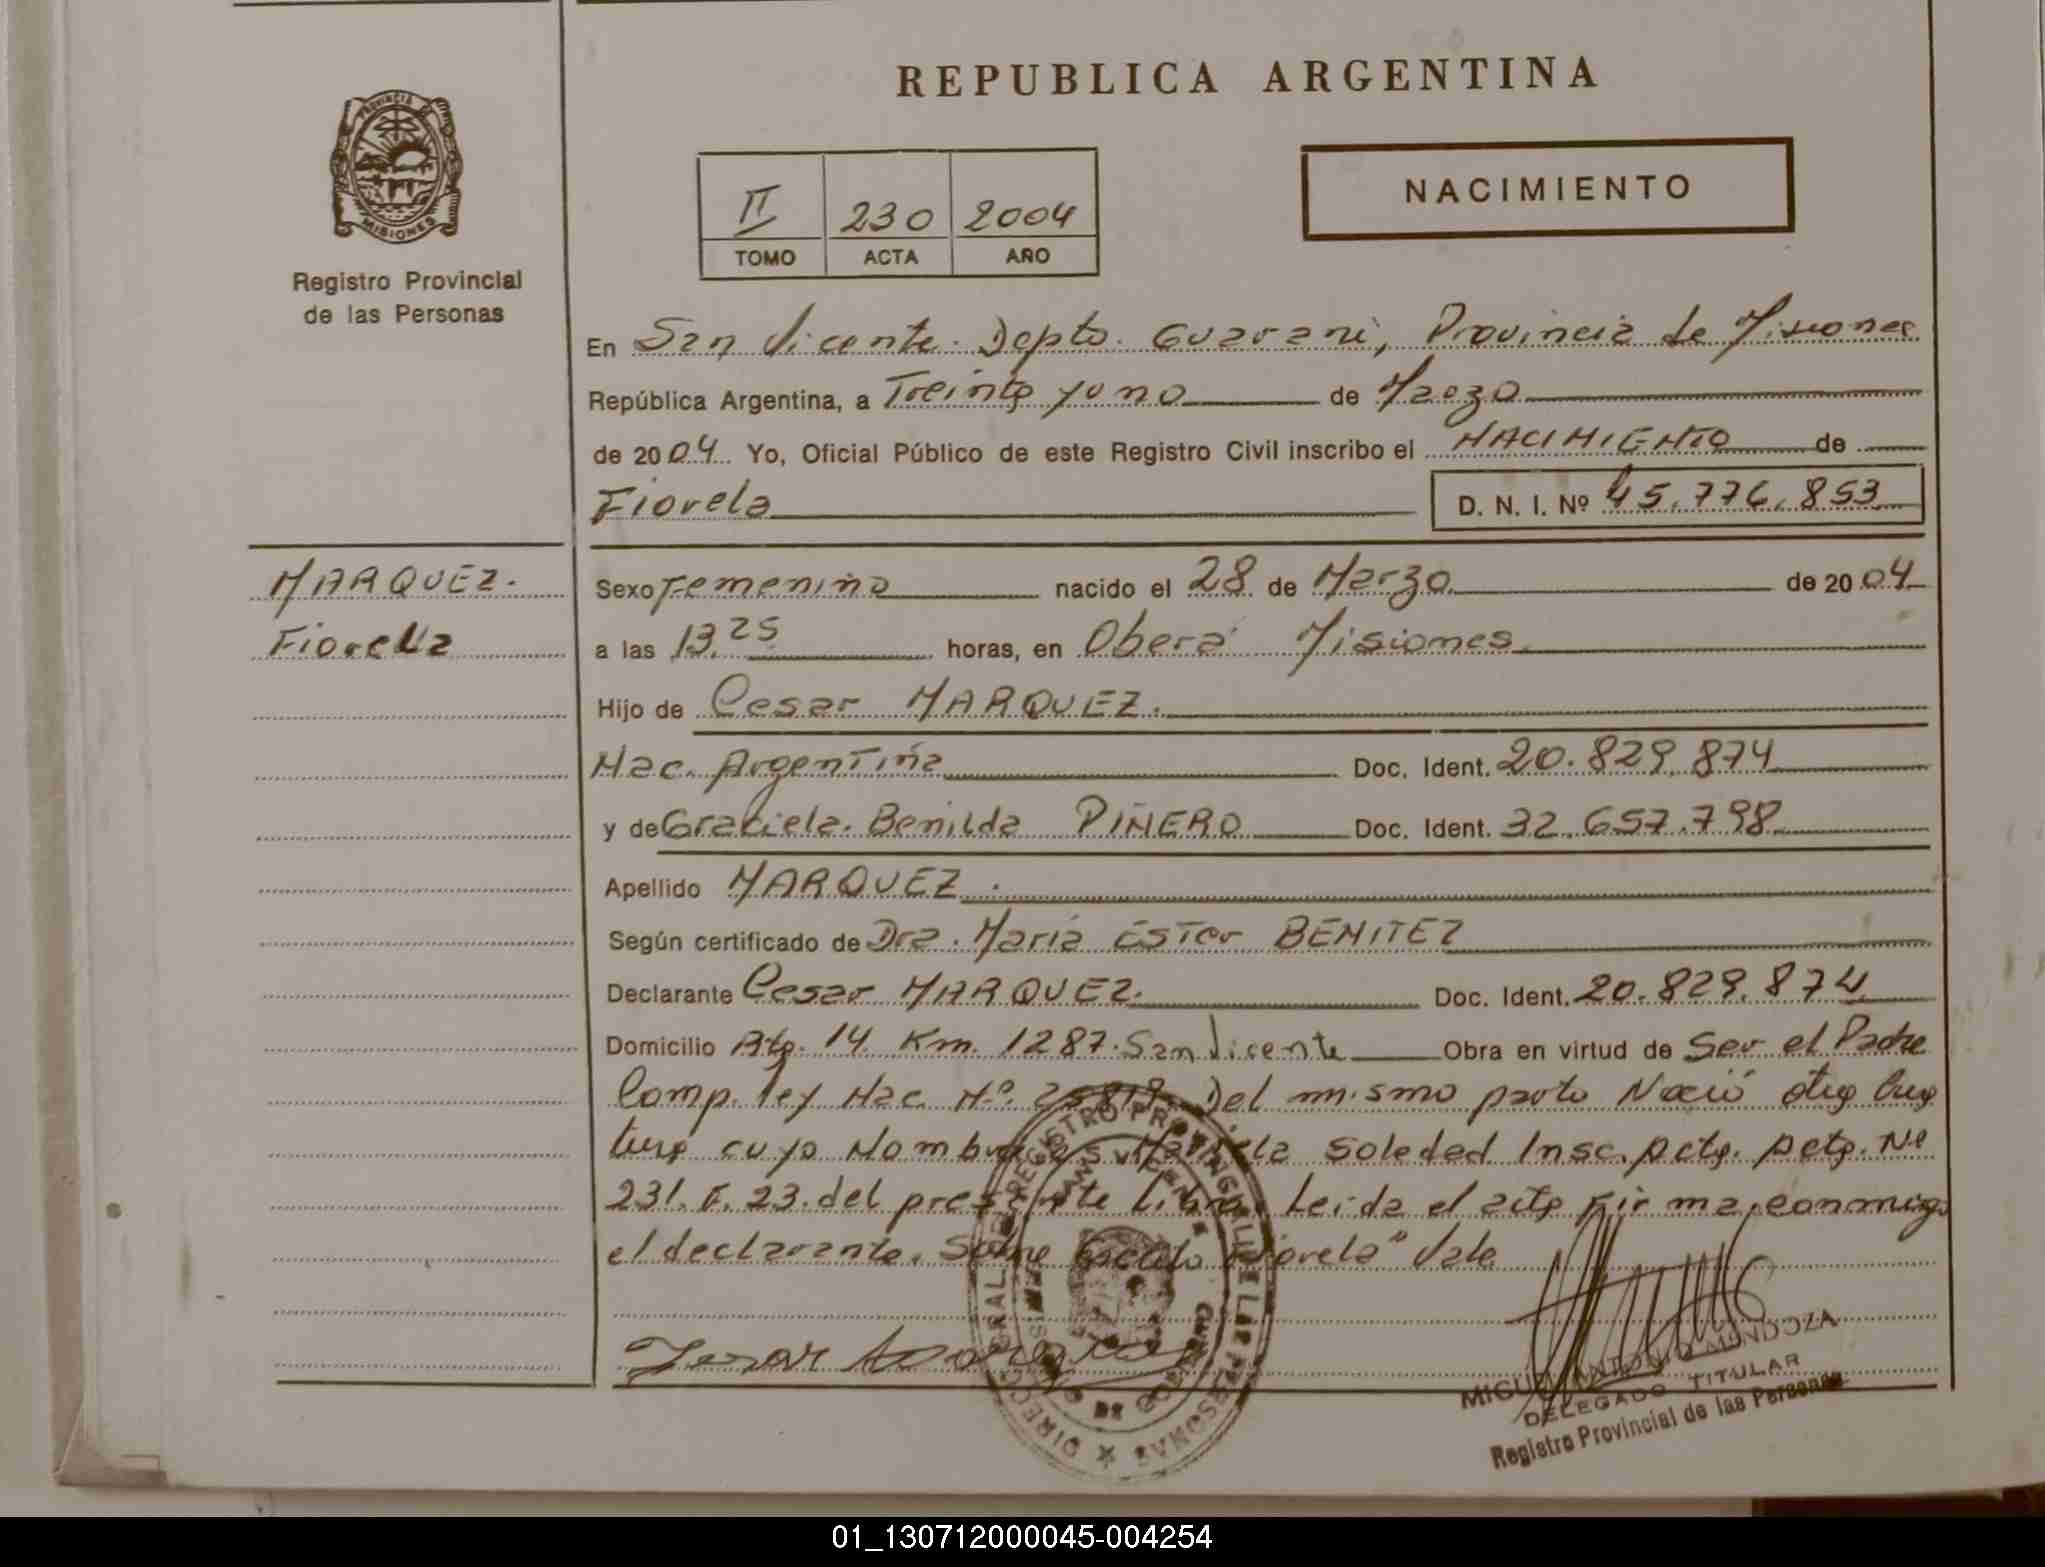 REPUBLICA ARGENTINA
PROVINCIA
MISIONES
Registro Provincial
de las Personas
II 230 2004
TOMO ACTA AÑO
NACIMIENTO
En San Vicente. Depto. Guarani, Provincia de Misiones
República Argentina, a Treinta y uno de Marzo
de 2004 Yo, Oficial Público de este Registro Civil inscribo el NACIMIENTO de
Fiorela D. N. I. Nº 45.776.853
MARQUEZ.
Fiorella
Sexo Femenino nacido el 28 de Marzo de 2004
a las 13.25 horas, en Oberá Misiones
Hijo de Cesar MARQUEZ.
Nac. Argentina Doc. Ident. 20.829.874
y de Graciela. Benilda PIÑERO Doc. Ident. 32.657.798
Apellido MARQUEZ.
Según certificado de Dra. Maria Ester BENITEZ
Declarante Cesar MARQUEZ. Doc. Ident. 20.829.874
Domicilio Rta. 14 Km. 1287. San Vicente Obra en virtud de Ser el Padre
Comp. ley Nac. Nº. Del mismo parto Nació otra Cria
tura cuyo Nombre es Soledad Insc. Acta. Nº
231. F. 23. del presente Libro. Leida el acta Firma, conmigo
el declarante. Sobre Fiorela" Vale
MIGUEL ANTONIO MENDOZA
DELEGADO TITULAR
Registro Provincial de las Personas
01_130712000045-004254